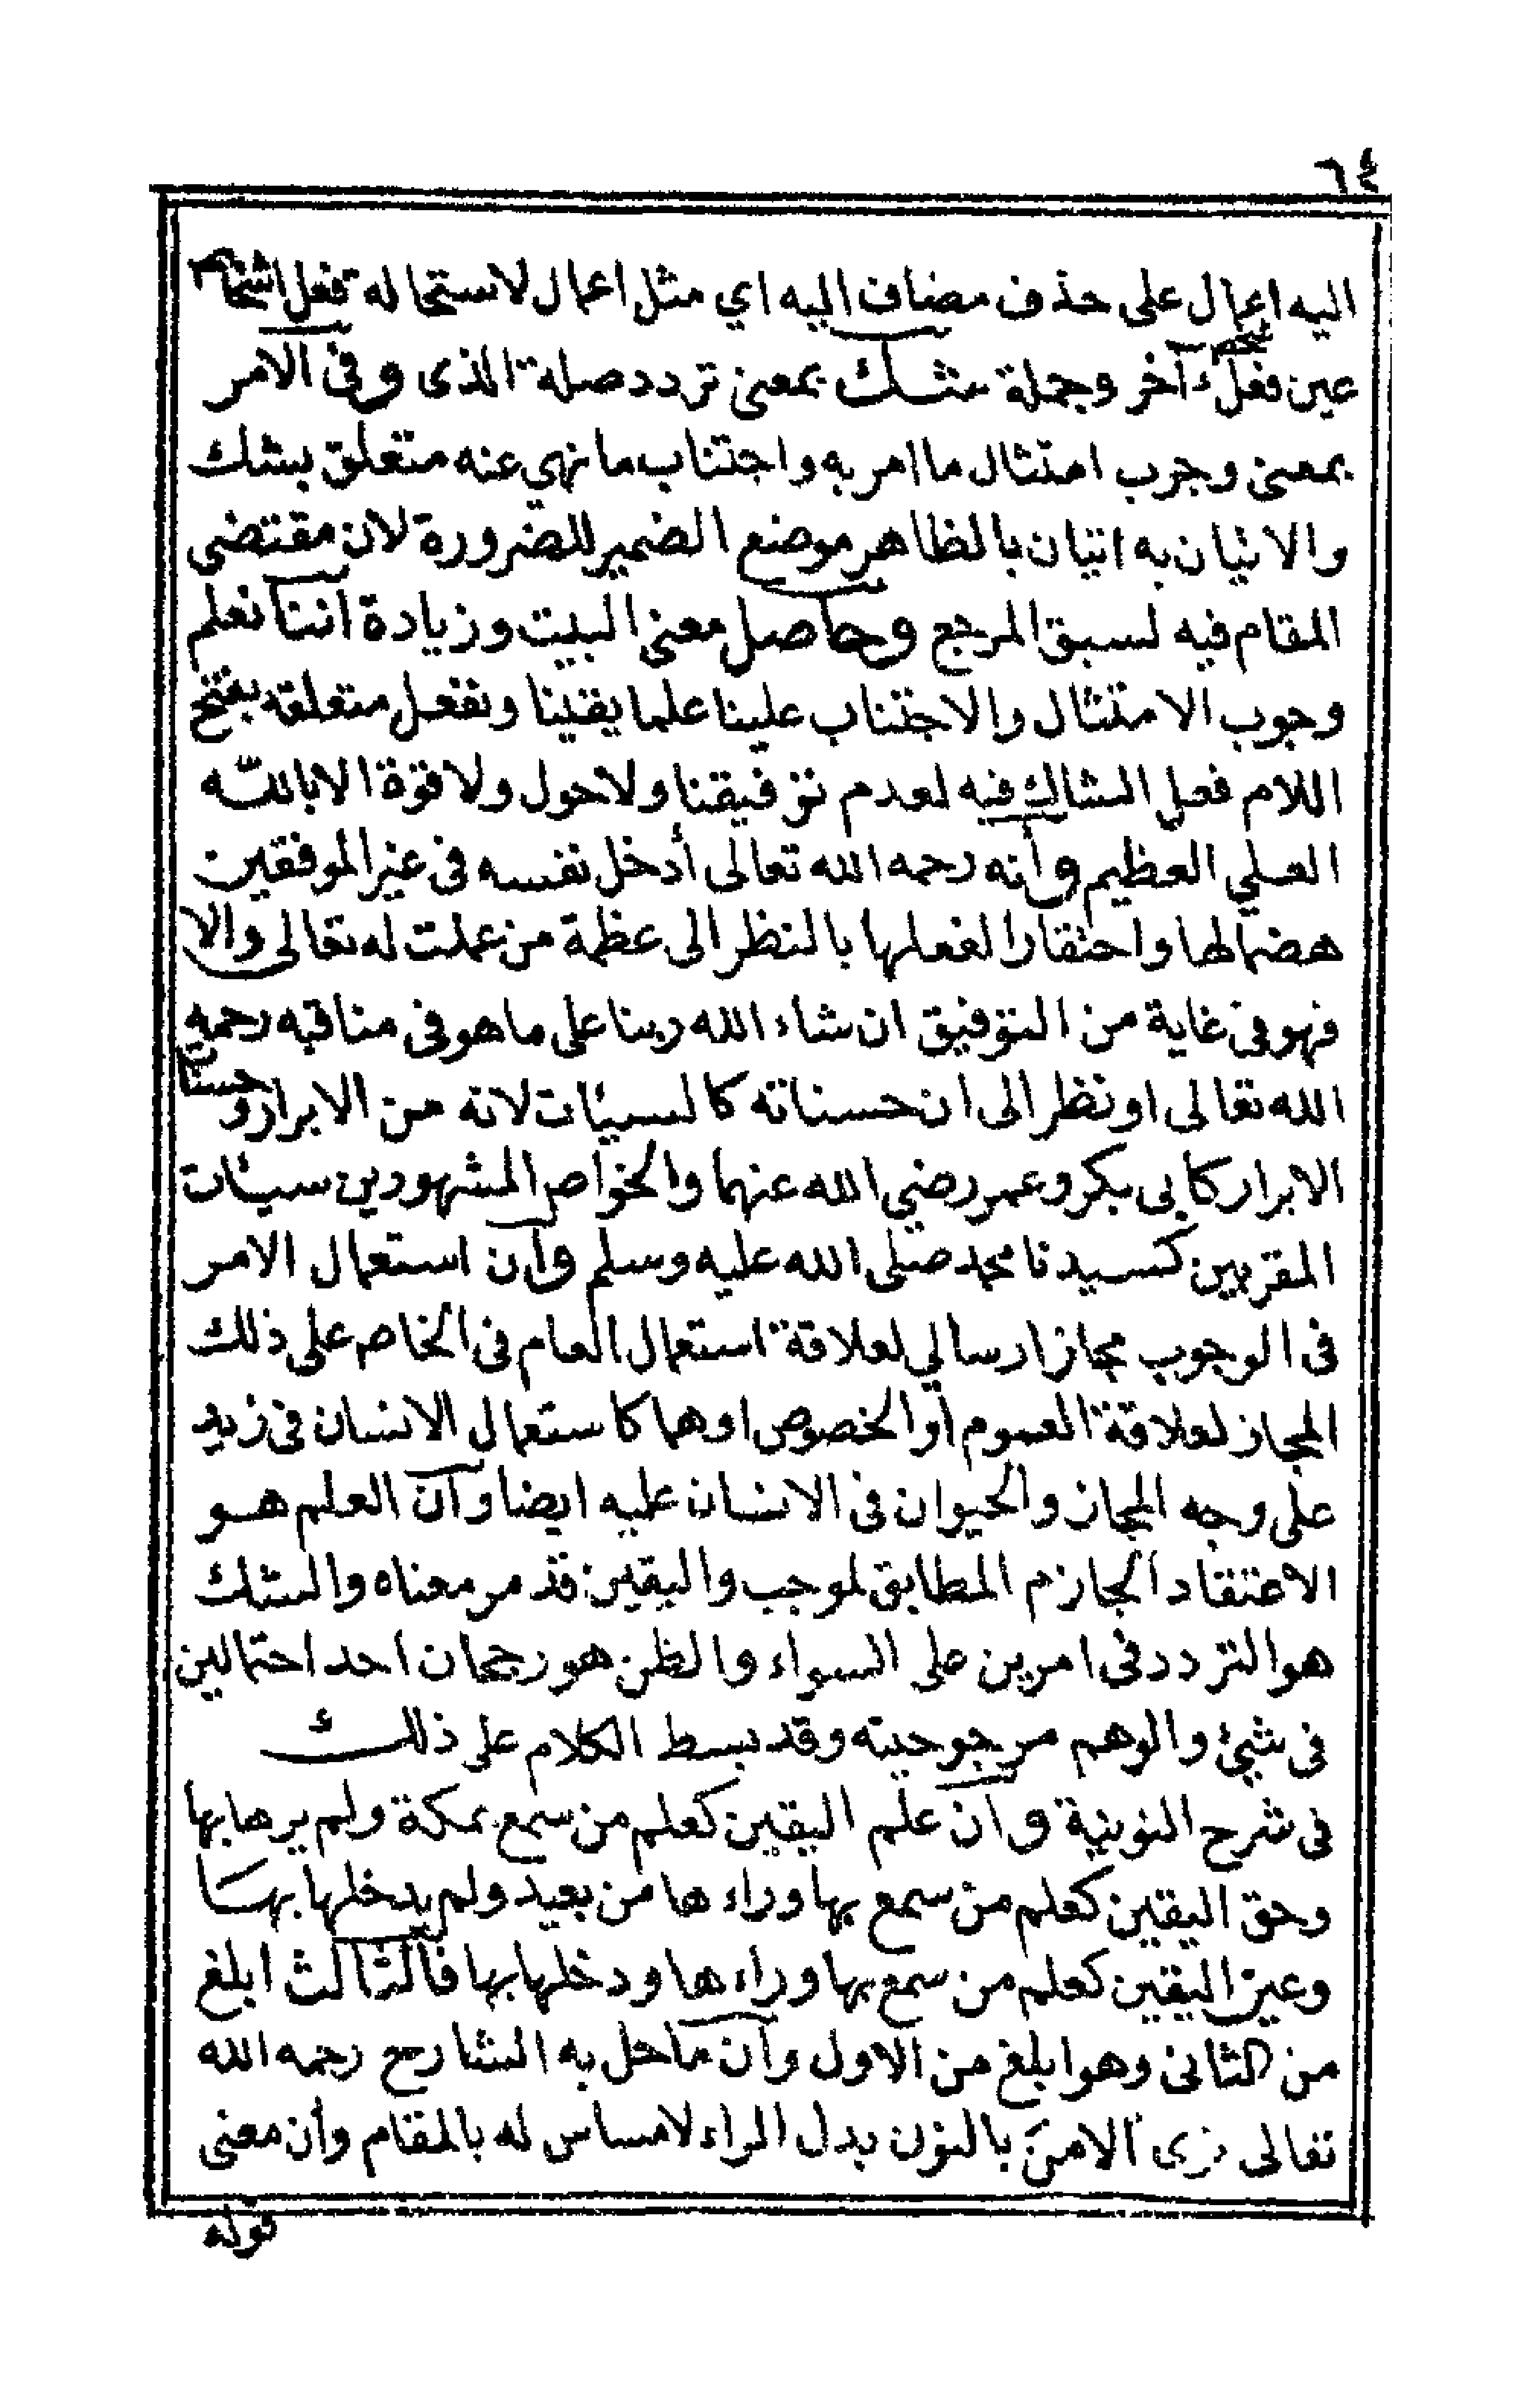 ٦٤
اليه اعمال على حذف مضاف اليه اي مثل اعمال لاستحالة فعل اشخاص
عين فعل شخص آخر وجملة شك بمعنى تردد صلة الذى وفى الامر
بمعنى وجوب امتثال ما امر به واجتناب ما نهي عنه متعلق بشك
والاتيان به اتيان بالظاهر موضع الضمير للضرورة لان مقتضى
المقام فيه لسبق المرجع وحاصل معنى البيت وزيادة اننا نعلم
وجوب الامتثال والاجتناب علينا علما يقينا ونفعل متعلقه بفتح
اللام فعل الشاك فيه لعدم توفيقنا ولا حول ولا قوة الا بالله
العلي العظيم وانه رحمه الله تعالى أدخل نفسه فى غير الموفقين
هضما لها واحتقارا لفعلها بالنظر الى عظمة من عملت له تعالى والا
فهو فى غاية من التوفيق ان شاء الله ربنا على ما هو فى مناقبه رحمه
الله تعالى او نظر الى ان حسناته كالسيئات لانه من الابرار وحسنات
الابرار كابى بكر وعمر رضي الله عنهما والخواص المشهودين سيئات
المقربين كسيدنا محمد صلى الله عليه وسلم وان استعمال الامر
فى الوجوب مجاز ارسالي لعلاقة استعمال العام فى الخاص على ذلك
المجاز لعلاقة العموم أو الخصوص او هما كاستعمال الانسان فى زيد
على وجه المجاز والحيوان فى الانسان عليه ايضا وان العلم هو
الاعتقاد الجازم المطابق لموجب واليقين قد مر معناه والشك
هو التردد فى امرين على السواء والظن هو رجحان احد احتمالين
فى شيئ والوهم مرجوحيته وقد بسط الكلام على ذلك
فى شرح النونية وان علم اليقين كعلم من سمع بمكة ولم يرها بها
وحق اليقين كعلم من سمع بها وراءها من بعيد ولم يدخلها بها
وعين اليقين كعلم من سمع بها وراءها ودخلها بها فالثالث ابلغ
من الثانى وهو ابلغ من الاول وان ما حل به الشارح رحمه الله
تعالى نرى الامن بالنون بدل الراء لا مساس له بالمقام وأن معنى
قوله